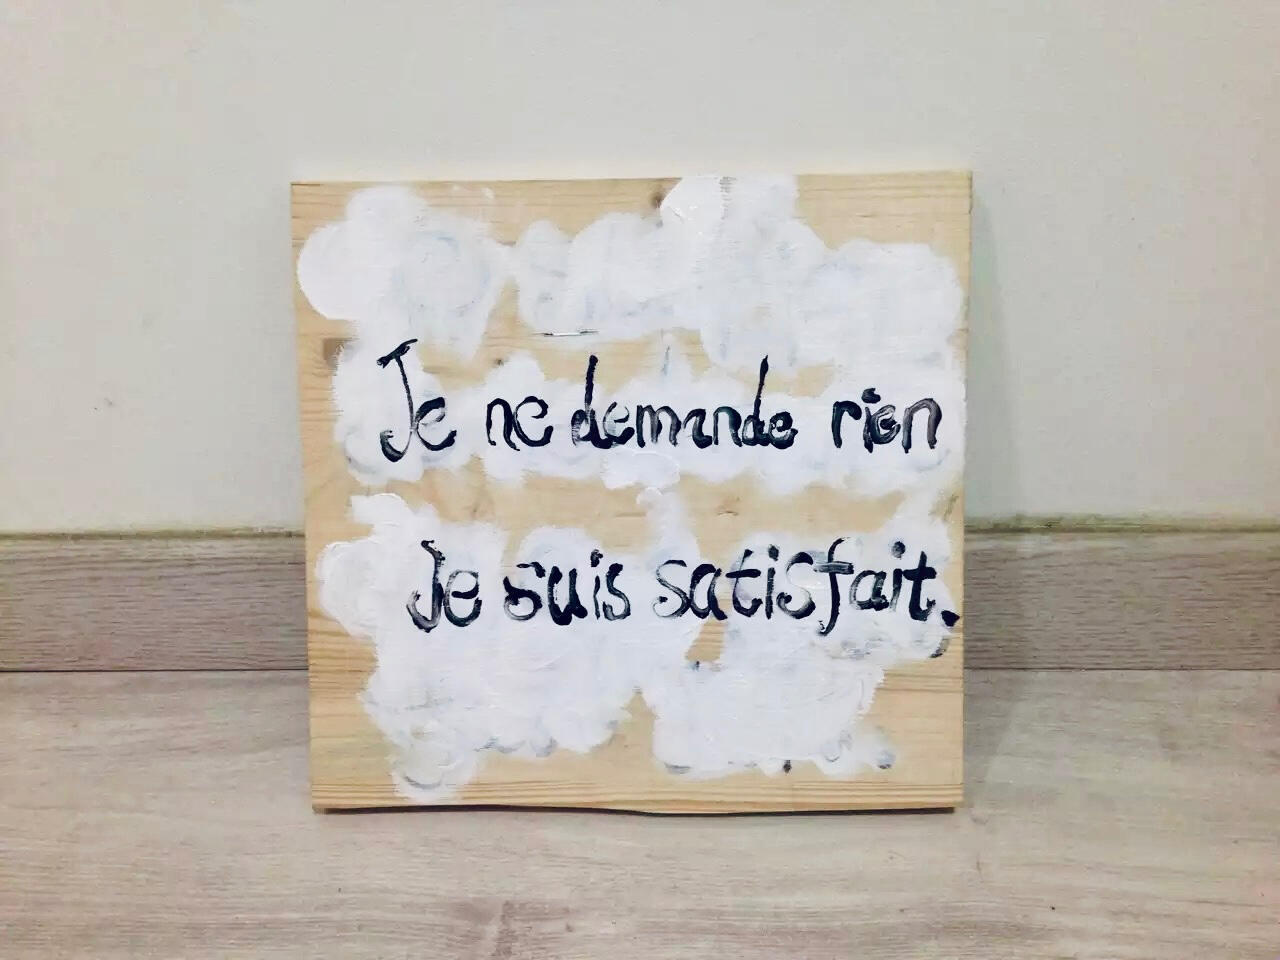 Je ne demande rien
Je suis satisfait.